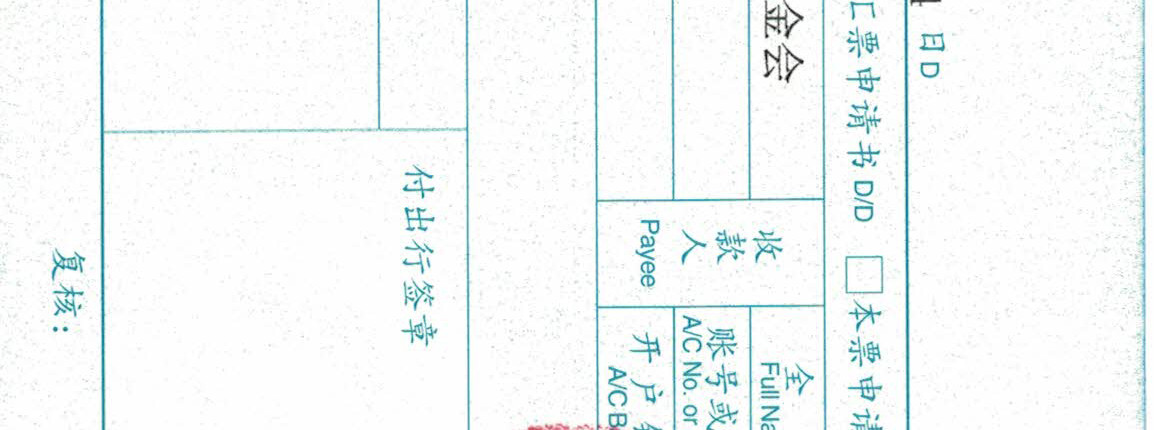 日D
汇票申请书 D/D □本票申请
金会
收款人
Payee
全
Full Na
账号或
A/C No. or
开户
A/C B
付出行签章
复核：